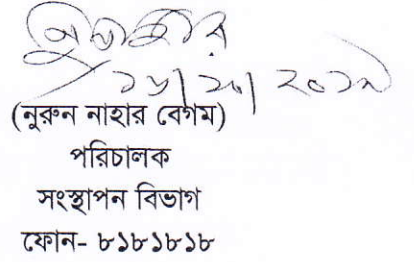 ১৬/১০/২০১৯
(নুরুন নাহার বেগম)
পরিচালক
সংস্থাপন বিভাগ
ফোন- ৮১৮১৮১৮